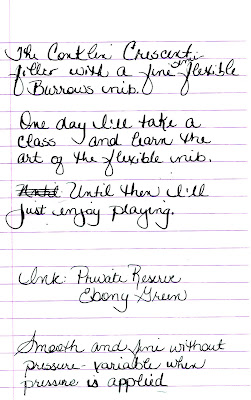 The Conklin Crescent-
filler with a fine flexible
Burrows nib.
One day I'll take a
class and learn the
art of the flexible nib.
Until Until then I'll
just enjoy playing.
Ink: Private Reserve
Ebony Green
Smooth and fine without
pressure - variable when
pressure is applied